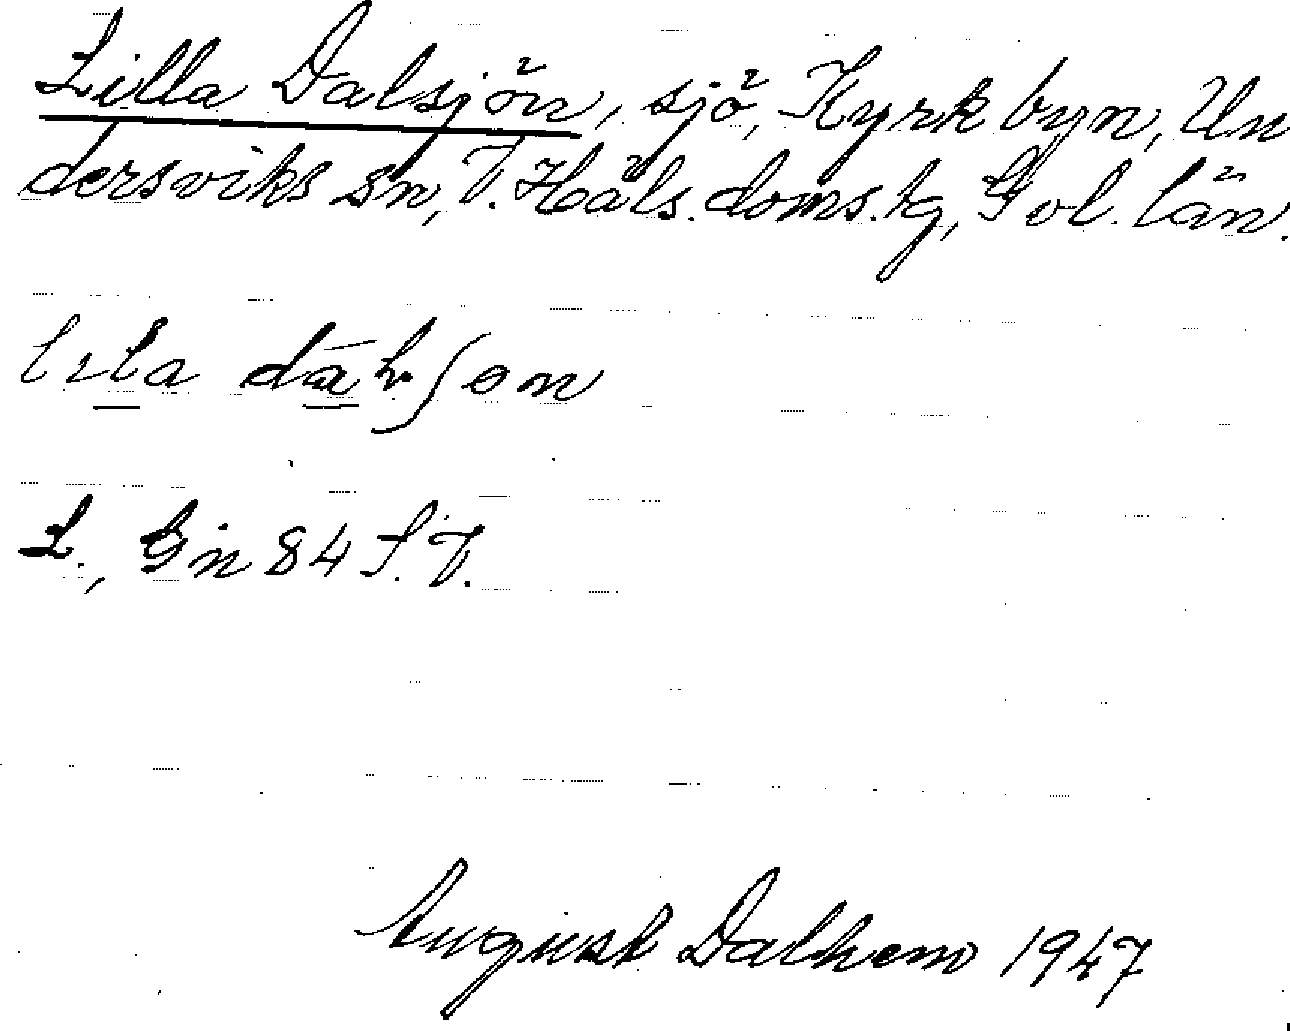 Lilla Dalsjön, sjö, Kyrkbyn, Un
dersviks sn, V. Häls. doms. tg, Gvl. län.
lıla dāłʃøn
L., Gin 84 S.V.
August Dalhem 1947